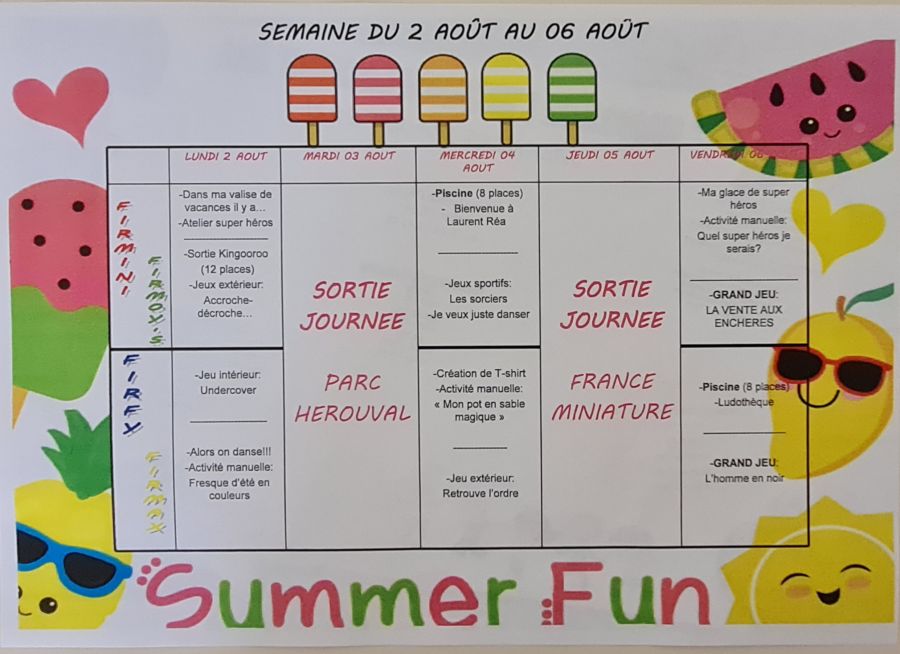 SEMAINE DU 2 AOÛT AU 06 AOÛT
LUNDI 2 AOUT
MARDI 03 AOUT
MERCREDI 04
AOUT
JEUDI 05 AOUT
VENDREDI 06
FIRMINI
FIRMOY'S
-Dans ma valise de
vacances il y a...
-Atelier super héros
-Sortie Kingooroo
(12 places)
-Jeux extérieur:
Accroche-
décroche...
SORTIE
JOURNEE
PARC
HEROUVAL
-Piscine (8 places)
- Bienvenue à
Laurent Réa
-Jeux sportifs:
Les sorciers
-Je veux juste danser
SORTIE
JOURNEE
FRANCE
MINIATURE
-Ma glace de super
héros
-Activité manuelle:
Quel super héros je
serais?
-GRAND JEU:
LA VENTE AUX
ENCHERES
FIRFY
FIRMAX
-Jeu intérieur:
Undercover
-Alors on danse!!!
-Activité manuelle:
Fresque d'été en
couleurs
-Création de T-shirt
-Activité manuelle:
« Mon pot en sable
magique »
-Jeu extérieur:
Retrouve l'ordre
-Piscine (8 places)
-Ludothèque
-GRAND JEU:
L'homme en noir
Summer Fun